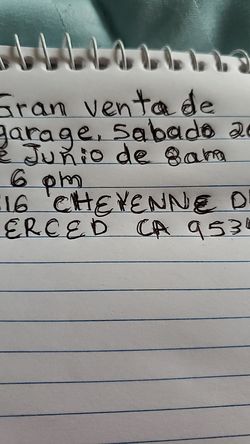 Gran venta de
garage, Sabado 20
e Junio de 8am
6 pm
16 CHEYENNE D
ERCED CA 953